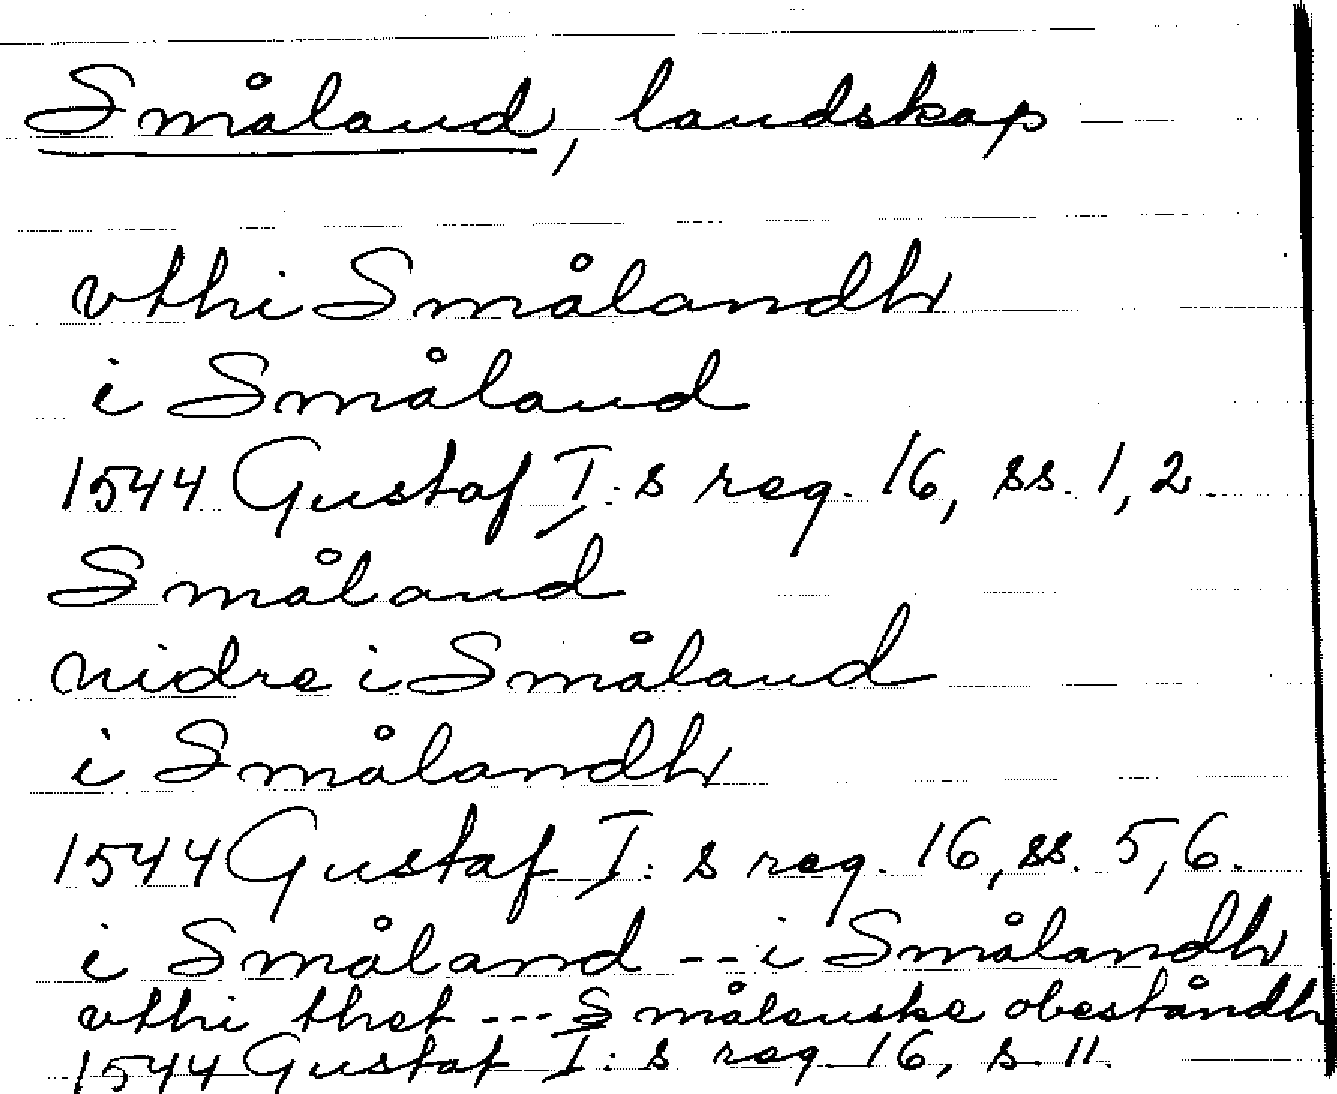 Småland, landskap
vthi Smålandh
i Småland
1544 Gustaf I:s reg. 16, ss. 1, 2.
Småland
nidre i Småland
i Smålandh
1544 Gustaf I:s reg. 16, ss. 5, 6.
i Småland -- i Smålandh
vthi thet --- Småleuske obeståndh
1544 Gustaf I:s reg. 16, s. 11.